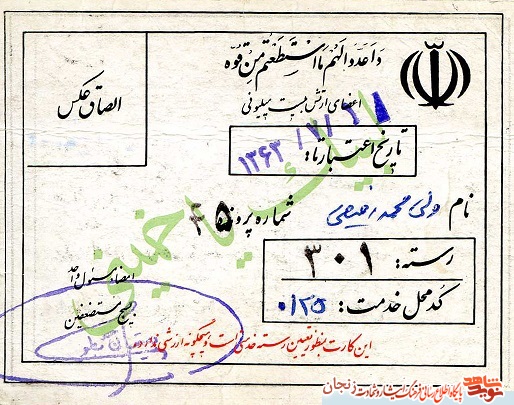 وَاَعِدّوا لَهُم مَا اسْتَطَعْتُم مِن قُوَّه
اعضای ارتش بیست میلیونی
الصاق عکس
تاریخ اعتبار تا:
۱۳۶۳/۷/۲۱
لبیک یا خمینی
نام ولی محمد رفیعی
شماره پرونده ۴۵
رسته: ۳۰۱
کد محل خدمت: ۰/۲۵
امضاء مسئول واحد
بسیج مستضعفین
این کارت بمنظور تعیین رسته خدمتی است و هیچگونه ارزشی ندارد
نوید شاهد
پایگاه اطلاع رسانی فرهنگ ایثار و شهادت
زنجان